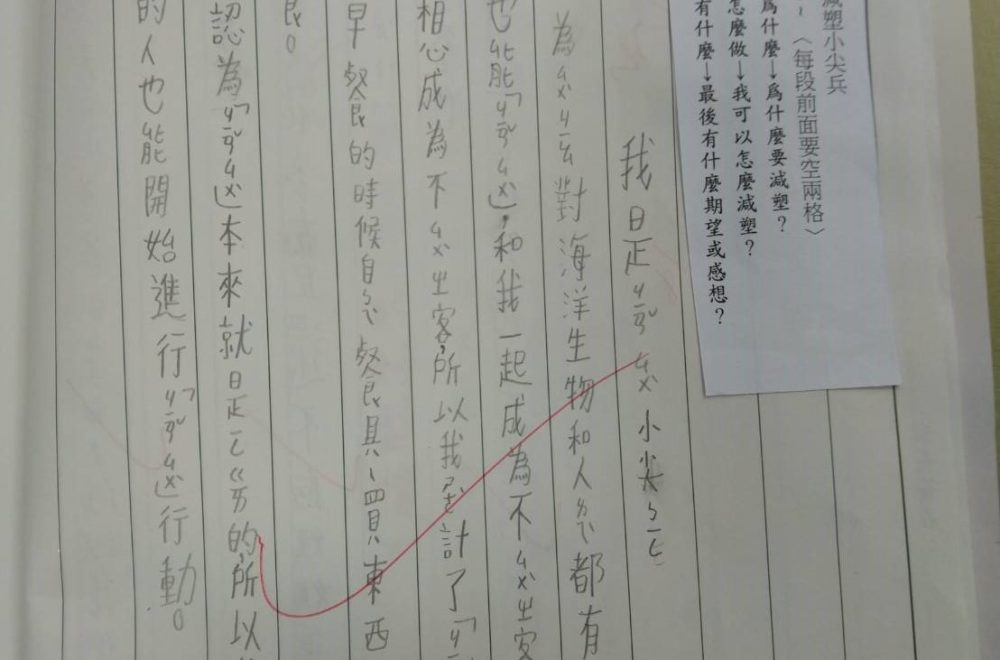 減塑小尖兵
〈每段前面要空兩格〉
為什麼→為什麼要減塑？
怎麼做→我可以怎麼減塑？
有什麼→最後有什麼期望或感想？
我是ㄐㄧㄢˇㄙㄨˋ小尖ㄅㄧㄥ
為ㄙㄨˋㄐㄧㄠ對海洋生物和人ㄌㄟˋ都有
也能「ㄐㄧㄢˇㄙㄨˋ」，和我一起成為不ㄙㄨˋㄓ客
想成為不ㄙㄨˋㄓ客，所以我設計了「ㄐㄧㄢˇ
早餐的時候自ㄅㄟˋ餐具、買東西
良。
認為「ㄐㄧㄢˇㄙㄨˋ」本來就是ㄧㄥ ㄍㄞ的，所以
的人也能開始進行「ㄐㄧㄢˇㄙㄨˋ」行動。